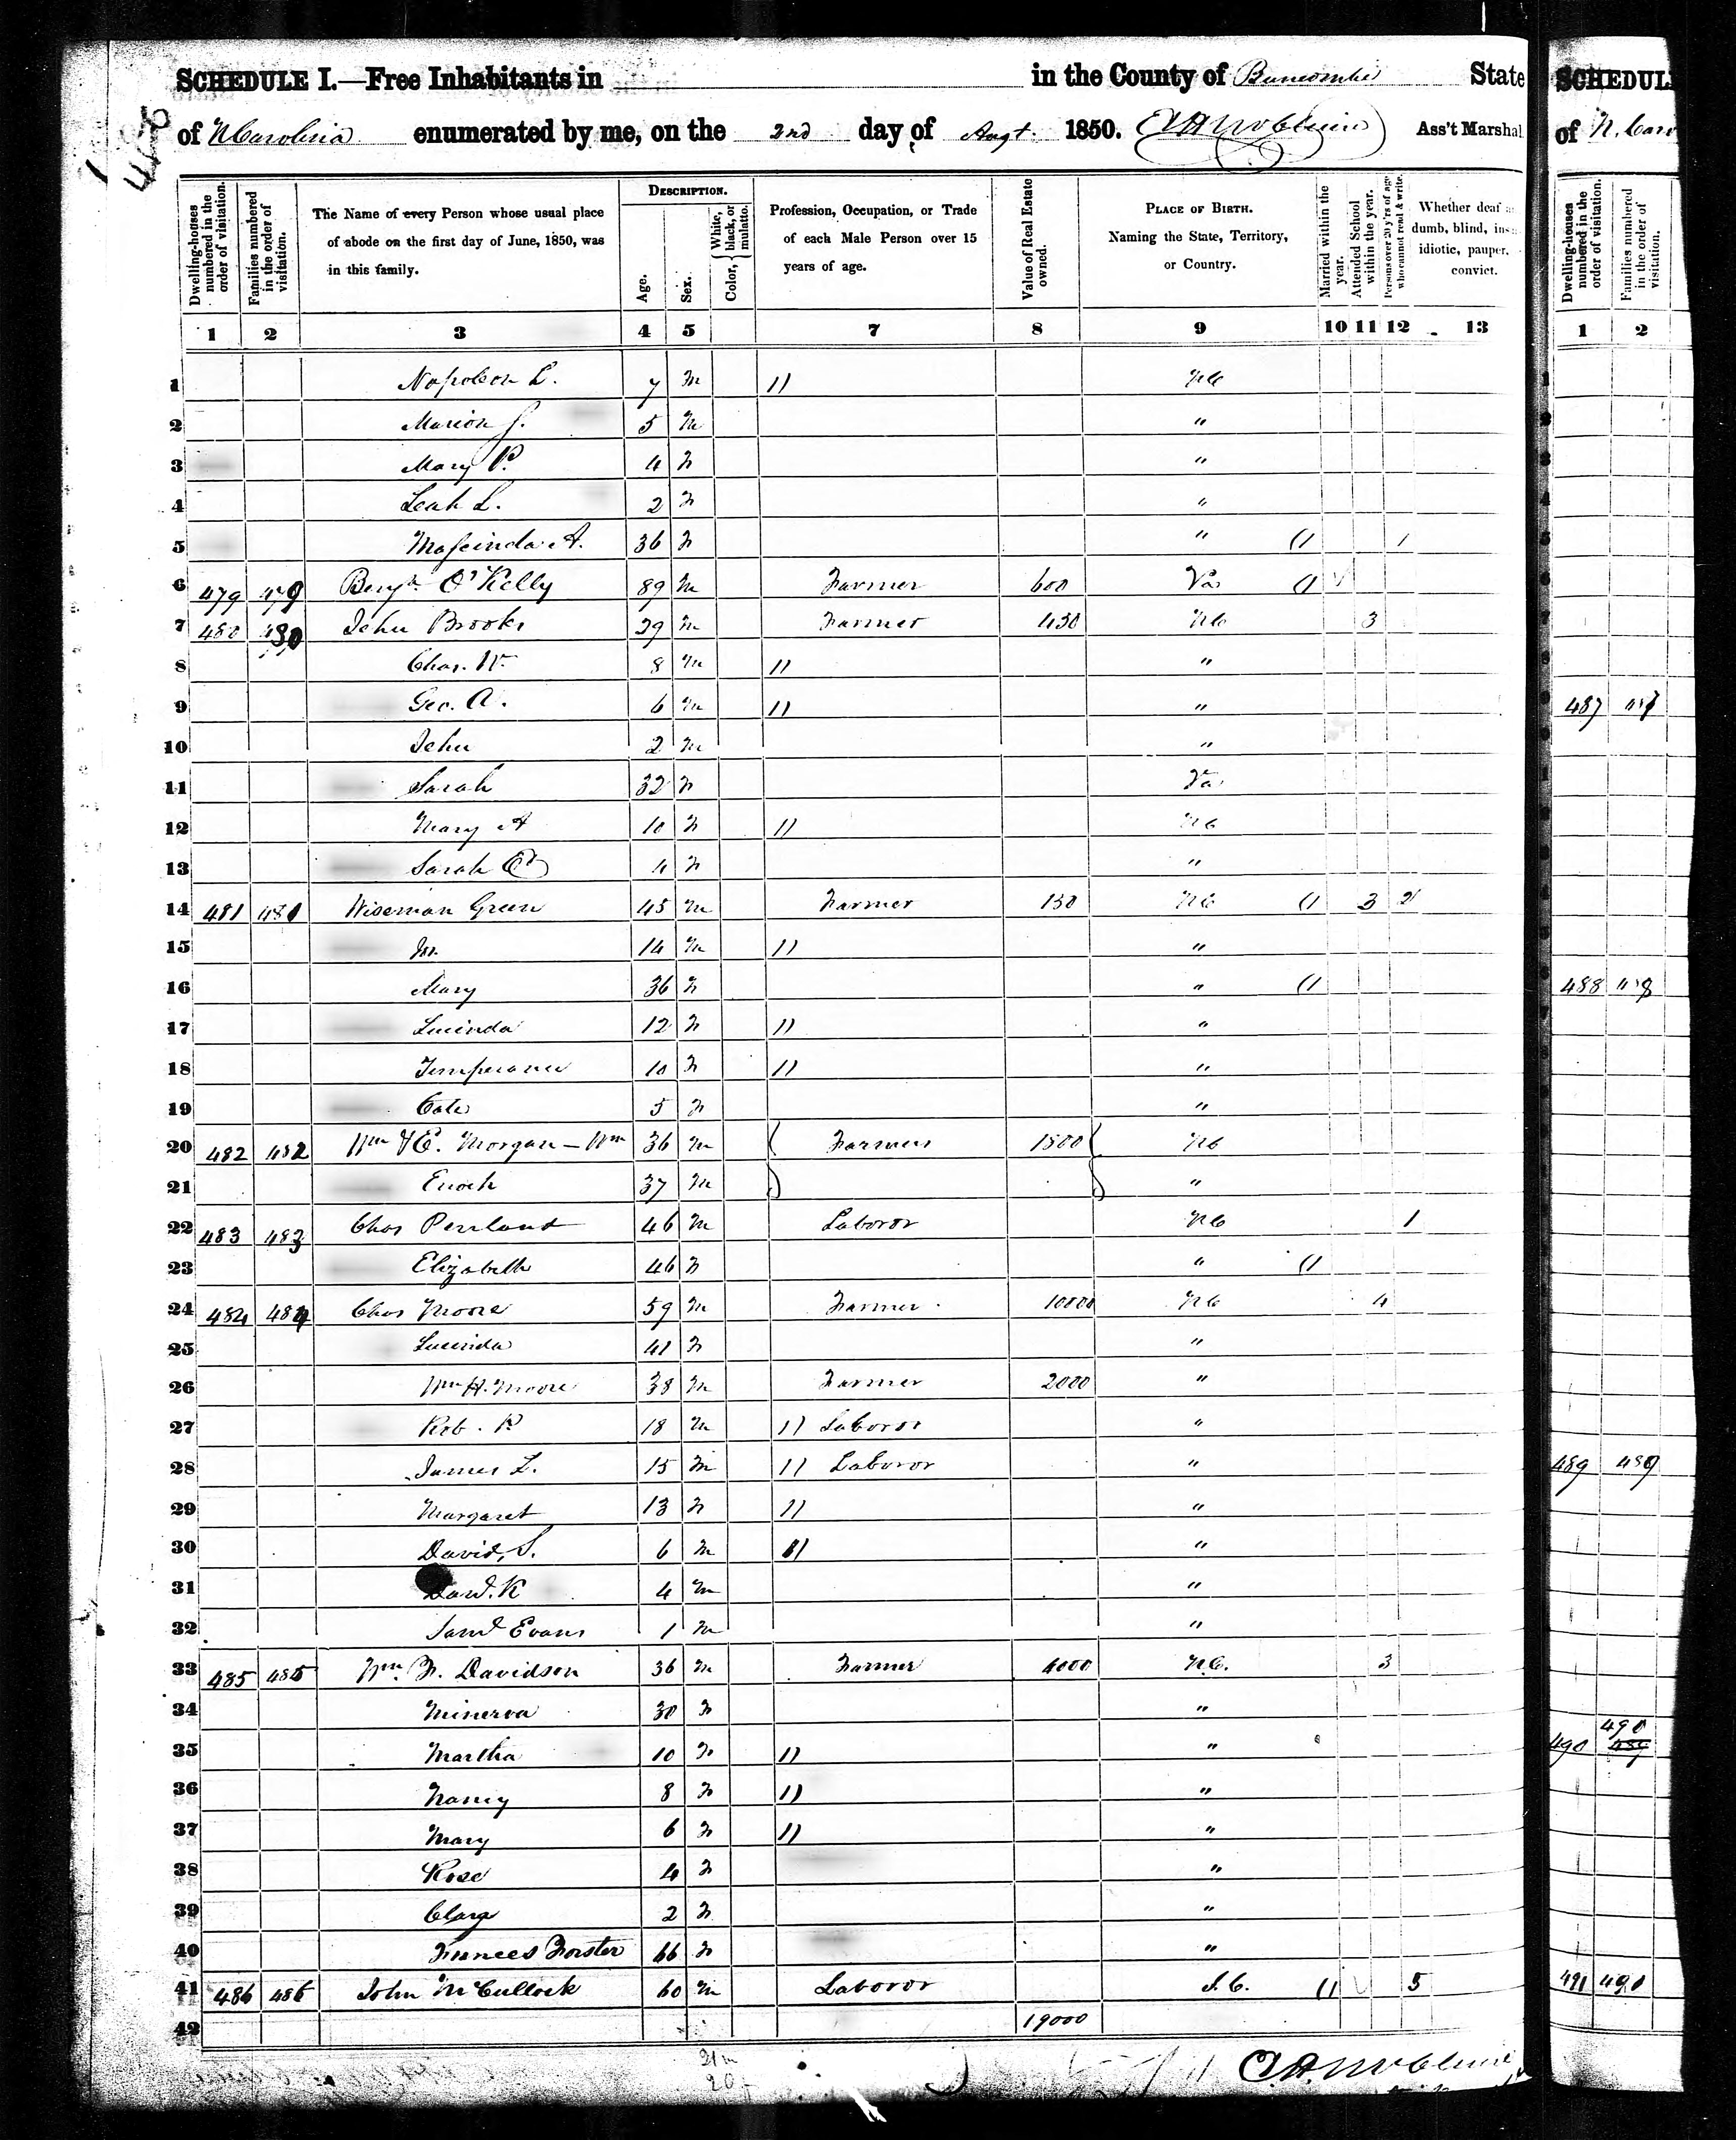 SCHEDULE I.—Free Inhabitants in in the County of Buncombe State
of N Carolina enumerated by me, on the 2nd day of Augt. 1850. Ass't Marshal
Dwelling-houses numbered in the order of visitation.
Families numbered in the order of visitation.
The Name of every Person whose usual place of abode on the first day of June, 1850, was in this family.
DESCRIPTION.
Age.
Sex.
Color, { White, black, or mulatto.
Profession, Occupation, or Trade of each Male Person over 15 years of age.
Value of Real Estate owned.
PLACE OF BIRTH. Naming the State, Territory, or Country.
Married within the year.
Attended School within the year.
Persons over 20 y'rs of age who cannot read & write.
Whether deaf dumb, blind, idiotic, pauper, convict.
1 2 3 4 5 7 8 9 10 11 12 13
1 Napoleon L. 7 m 11 NC
2 Marion J. 5 m "
3 Mary P. 4 F "
4 Leah L. 2 F "
5 A. 36 F " (1 1
6 479 479 Benjn. O'Kelly 89 m Farmer 600 Va (1
7 480 480 John Brooks 39 m Farmer 450 NC 3
8 Chas. W. 8 m 11 "
9 Geo. A. 6 m 11 "
10 John 2 m "
11 Sarah 32 F Va
12 Mary A 10 F 11 NC
13 Sarah E 4 F "
14 481 481 Wiseman Green 45 m Farmer 150 NC (1 3 2
15 Jn. 14 m 11 "
16 Mary 36 F " (1
17 Lucinda 12 F 11 "
18 Temperance 10 F 11 "
19 Cate 5 F "
20 482 482 Wm & E. Morgan — Wm 36 m { Farmers 1500 { NC
21 Enoch 37 m "
22 483 483 Chas Penland 46 m Laboror NC 1
23 Elizabeth 46 F " (1
24 484 484 Chas Moore 59 m Farmer 10000 NC 4
25 Lucinda 41 F "
26 Wm H. Moore 38 m Farmer 2000 "
27 Rob. P 18 m 11 Laboror "
28 James L. 15 m 11 Laboror "
29 Margaret 13 F 11 "
30 David S. 6 m 11 "
31 K 4 m "
32 Saml Evans 1 m "
33 485 485 Wm. F. Davidson 36 m Farmer 4000 N.C. 3
34 Minerva 30 F "
35 Martha 10 F 11 "
36 Nancy 8 F 11 "
37 Mary 6 F 11 "
38 Rose 4 F "
39 Clara 2 F "
40 Frances Forster 66 F "
41 486 486 John McCullock 60 m Laboror S.C. (1 5
42 19000
21 m
20 F
SCHEDUL
of N. Caro
Dwelling-houses numbered in the order of visitation.
Families numbered in the order of visitation.
1 2
487
488
489 489
490
490 489
491 490